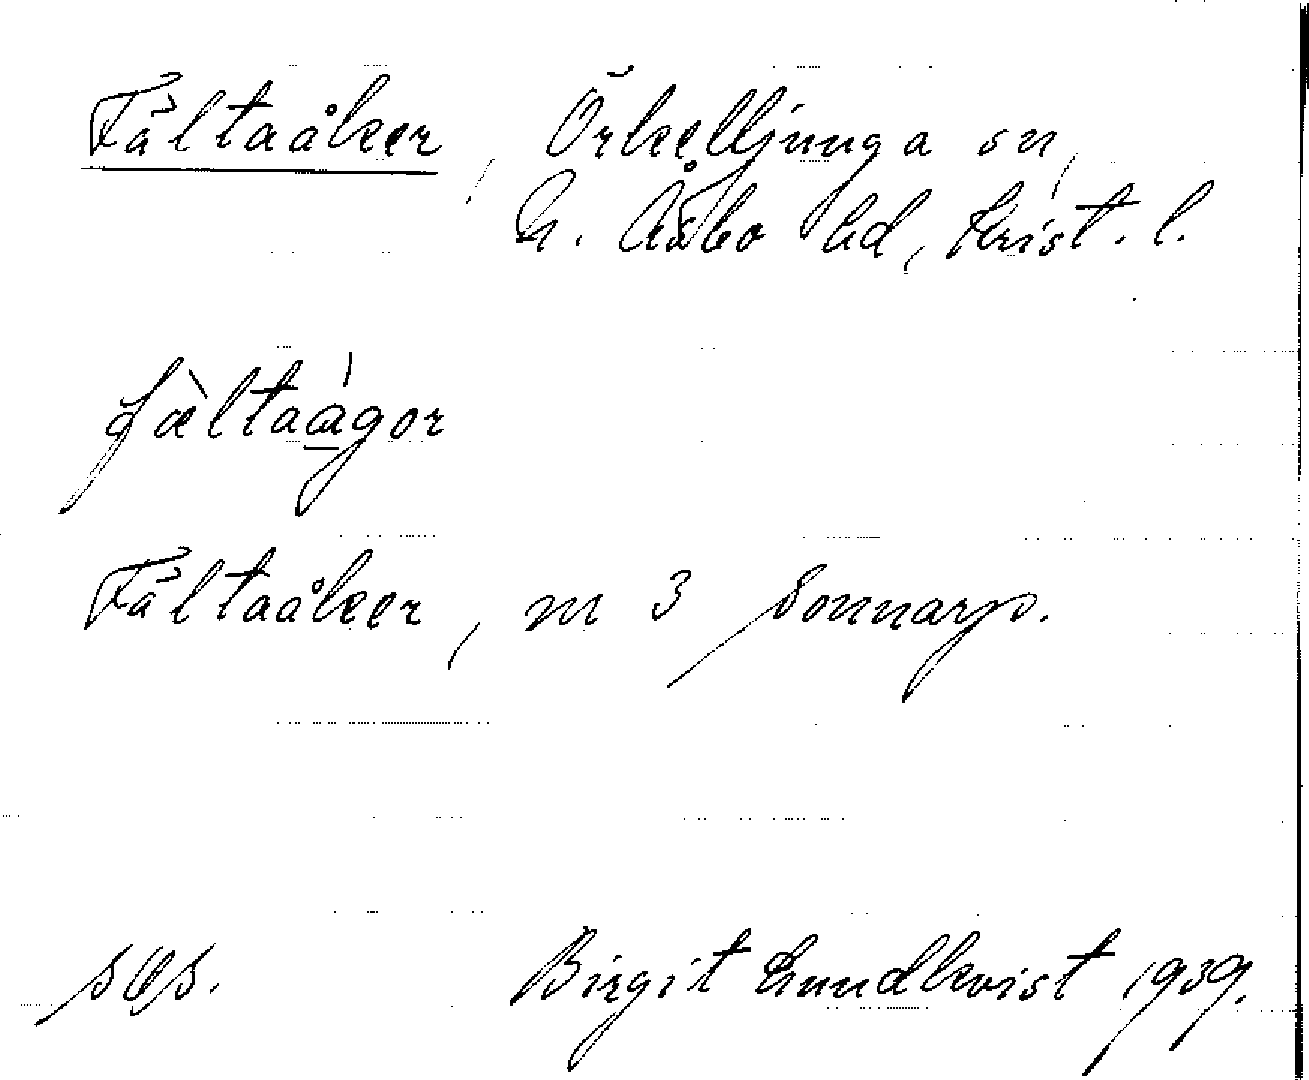 Fältaåker, Örkelljunga sn,
N. Åsbo hd, Krist. l.
fæ̀ltaá̱gor
Fältaåker, m 3 Sonnarp.
Birgit Lundkvist 1939.